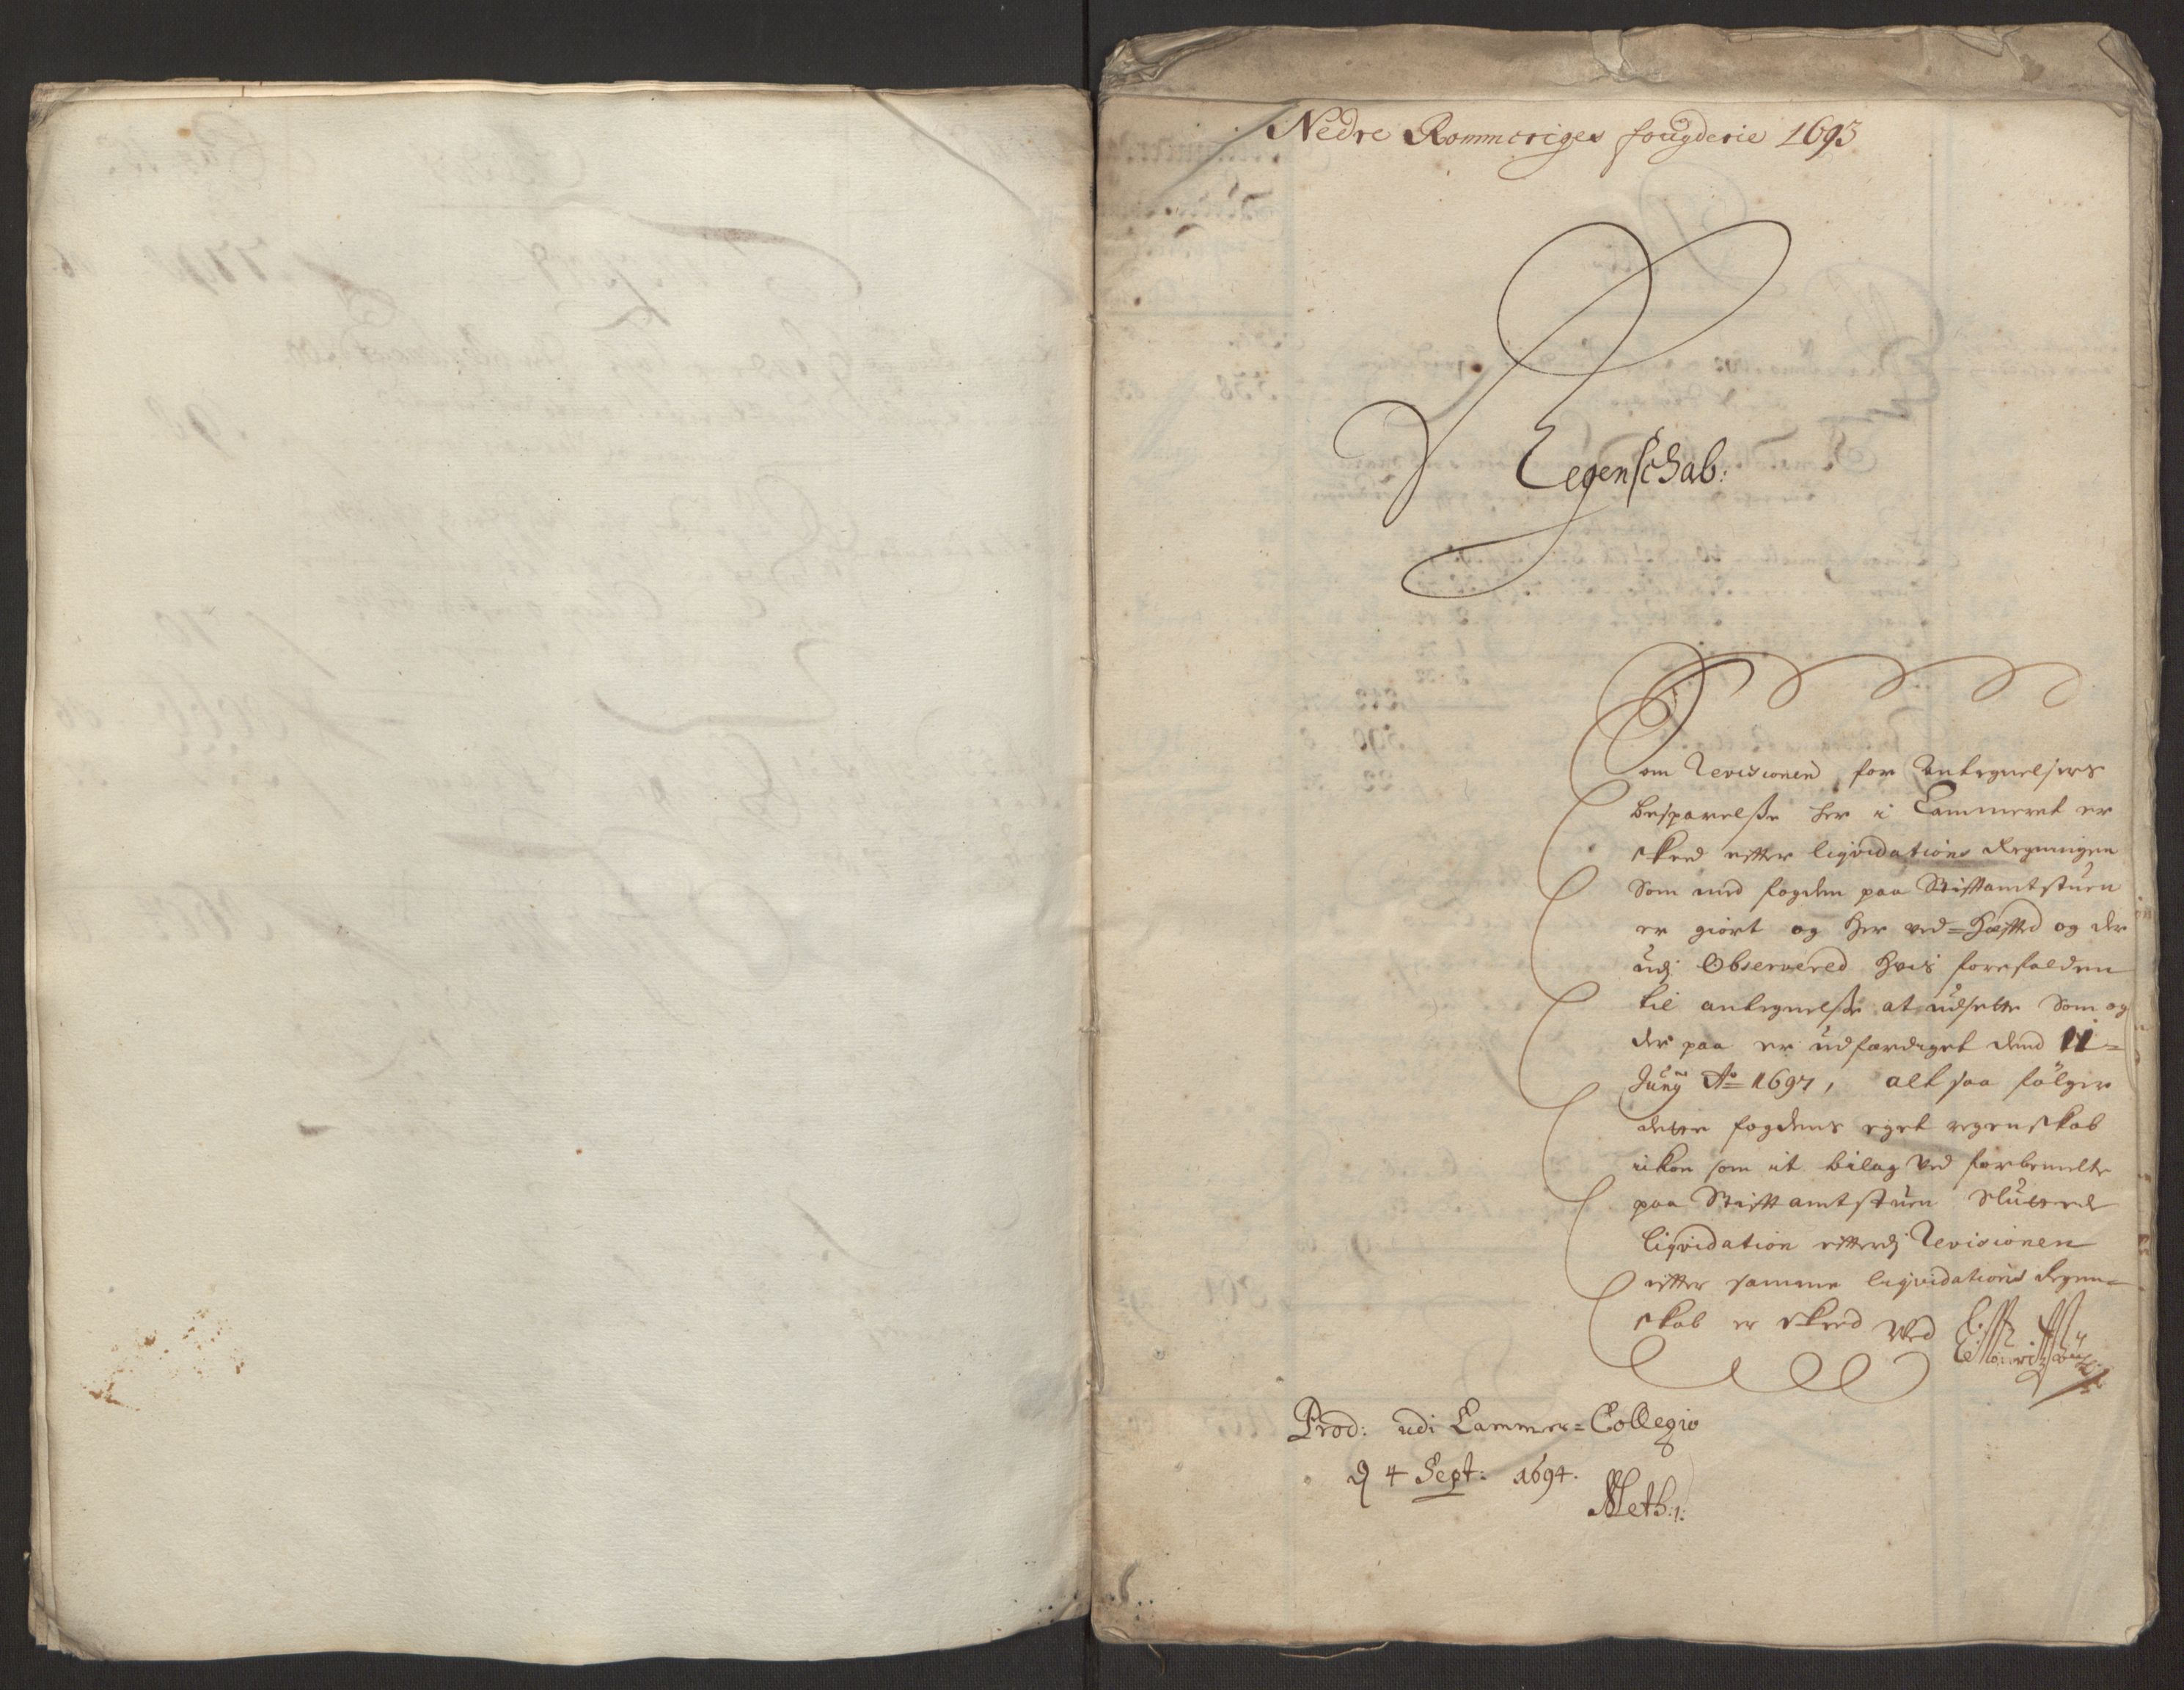 Nedre Rommeriges fougderie 1693
Regenschab:
Som Revisionen for Antegnelsers
besparelsse her i Cammeret er
skeed efter liqvidations Regningen
Som med fogden paa Stifftamtstuen
er giort og her ved=hæffted og der
udj Observered hvis forefalden
til antegnelsse at udsette Som og
der paa er udfærdiget dend 11=
Junÿ Ao 1697, alt saa følger
dette fogdens eget regenskab
ikon som it bilag ved forbemelte
paa Stifftamtstuen Slutted
liqvidation efterdj Revisionen
efter samme liqvidations Regen=
skab er skeed Ved
Prod: udi Cammer=Collegio
d 4 Sept: 1694.